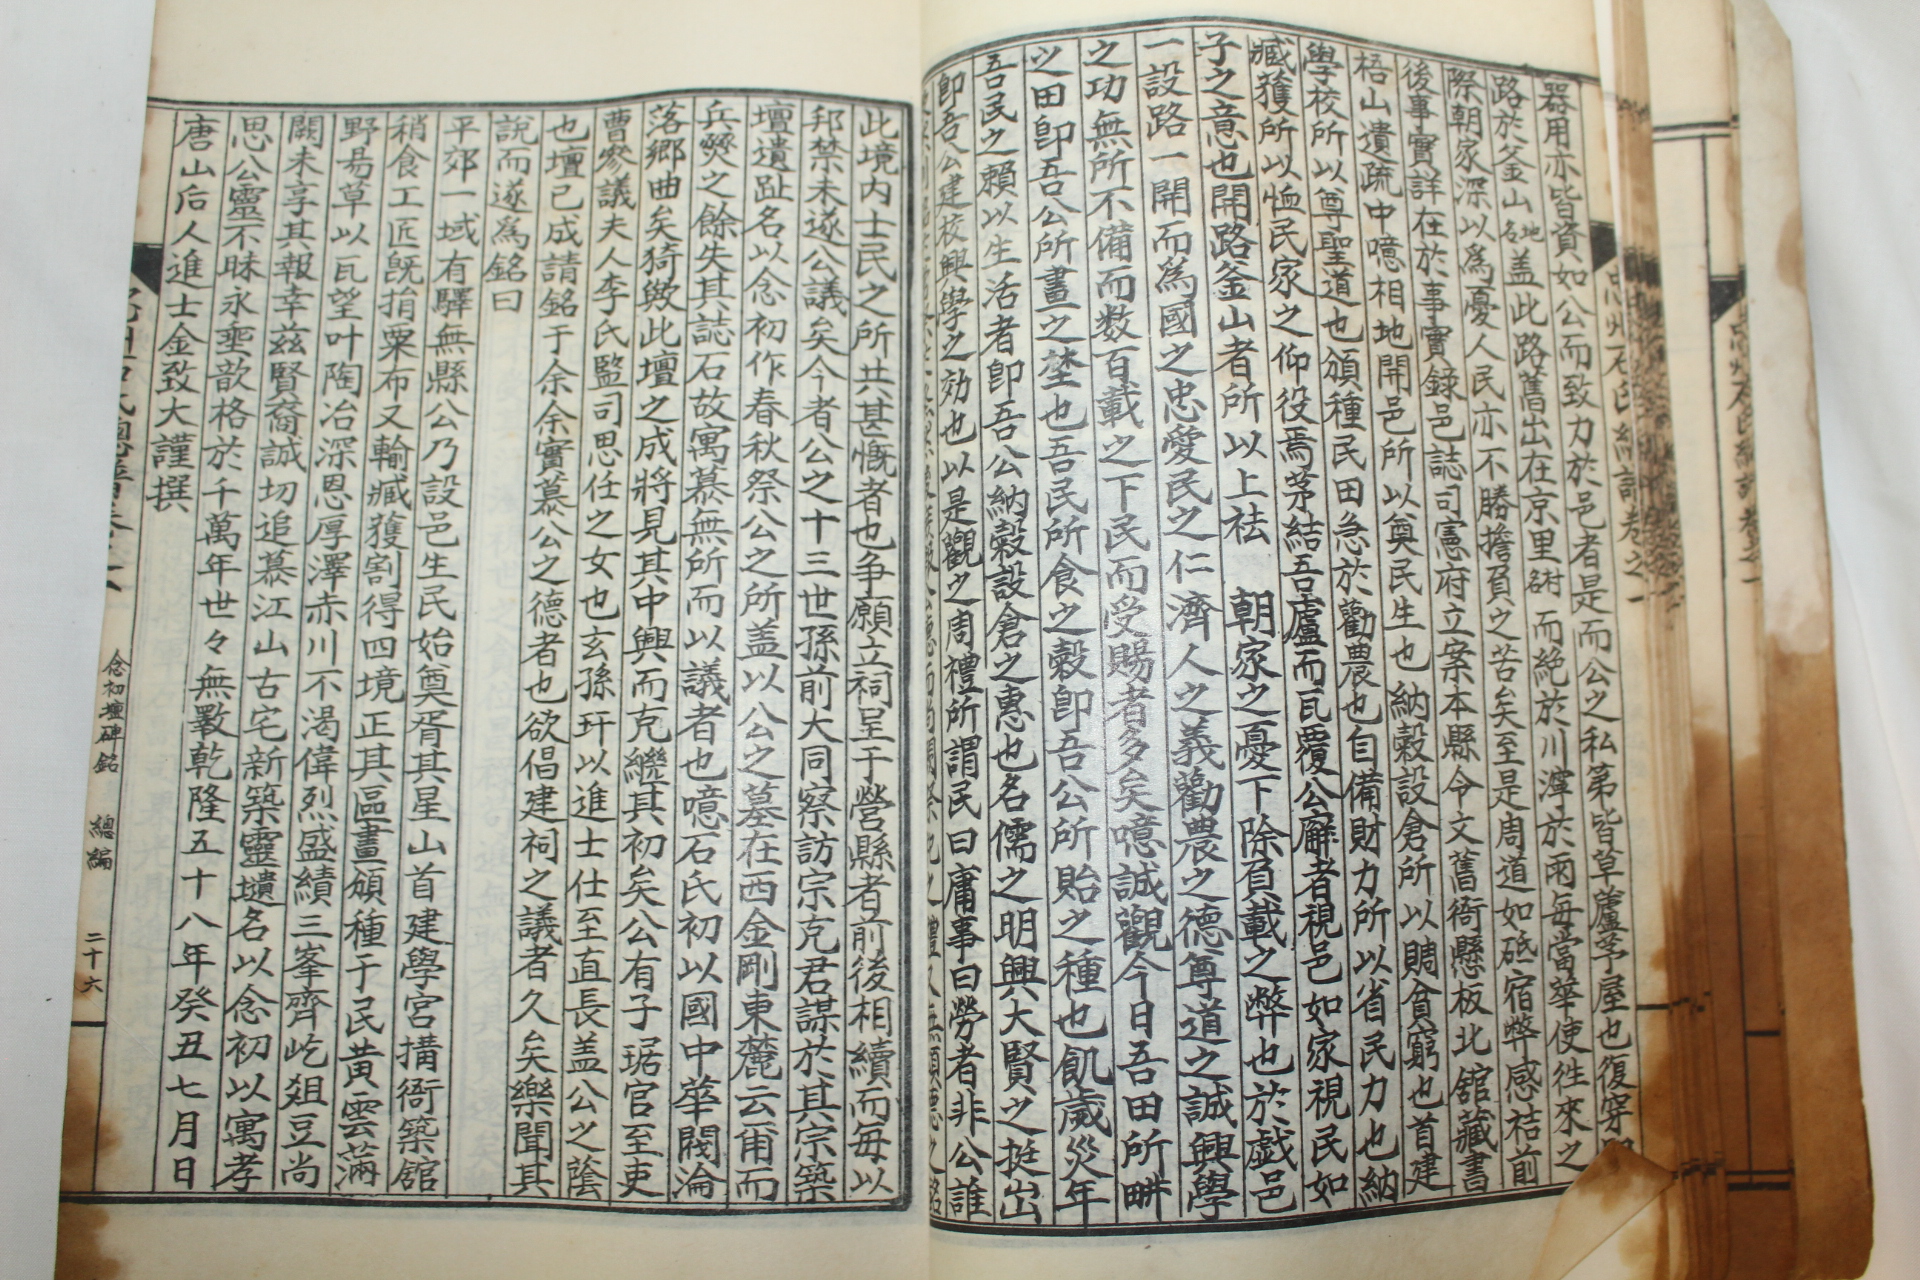 器用亦皆資如公而致力於邑者是而公之私第皆草蘆茅屋也復穿
路於釜山地名盖此路舊出在京里村名而絶於川濘於雨每當華使徃來之
際朝家深以爲憂人民亦不勝擔負之苦矣至是周道如砥宿弊感祛前
後事實詳在於事實錄邑誌司憲府立案本縣令文舊衙懸板北舘藏書
梧山遺疏中噫相地開邑所以奠民生也納穀設倉所以賙貧窮也首建
學校所以尊聖道也頒種民田急於勸農也自備財力所以省民力也納
臧獲所以恤民家之仰役焉茅結吾廬而瓦覆公廨者視邑如家視民如
子之意也開路釜山者所以上袪 朝家之憂下除負載之弊也於戯邑
一設路一開而爲國之忠愛民之仁濟人之義勸農之德尊道之誠興學
之功無所不備而数百載之下民而受賜者多矣噫誠觀今日吾田所畊
之田卽吾公所畫之埜也吾民所食之穀卽吾公所貽之種也飢歲災年
吾民之賴以生活者卽吾公納穀設倉之惠也名儒之明興大賢之挺出
卽吾公建校興學之効也以是觀之周禮所謂民曰庸事曰勞者非公誰
此境内士民之所共甚慨者也争願立祠呈于營縣者前後相續而每以
邦禁未遂公議矣今者公之十三世孫前大同察訪宗克君謀於其宗築
壇遺趾名以念初作春秋祭公之所盖以公之墓在西金剛東麓云甭而
兵燹之餘失其誌石故寓慕無所而以議者也噫石氏初以國中華閥淪
落鄉曲矣猗歟此壇之成將見其中興而克繼其初矣公有子琚官至吏
曹參議夫人李氏監司思任之女也玄孫玕以進士仕至直長盖公之蔭
也壇已成請銘于余余實慕公之德者也欲倡建祠之議者久矣樂聞其
說而遂爲銘曰
平郊一域有驛無縣公乃設邑生民始奠胥其星山首建學宮搆衙築舘
稍食工匠旣捐粟布又輸臧獲割得四境正其區畫頒種于民黄雲滿
野易草以瓦望叶陶冶深恩厚澤赤川不渴偉烈盛績三峯齊屹爼豆尚
闕未享其報幸兹賢裔誠切追慕江山古宅新築靈壝名以念初以寓孝
思公靈不昧永垂歆格於千萬年世々無斁乾隆五十八年癸丑七月日
唐山后人進士金致大謹撰
念初壇碑銘 總編 二十六